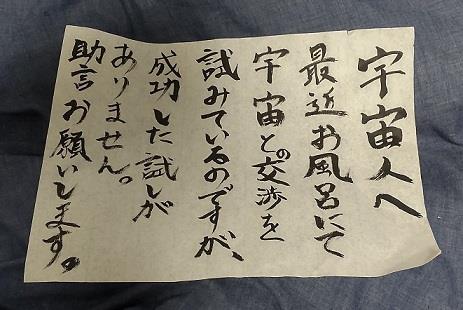 宇宙人へ
最近お風呂にて
宇宙との交渉を
試みているのですが、
成功した試しが
ありません。
助言お願いします。